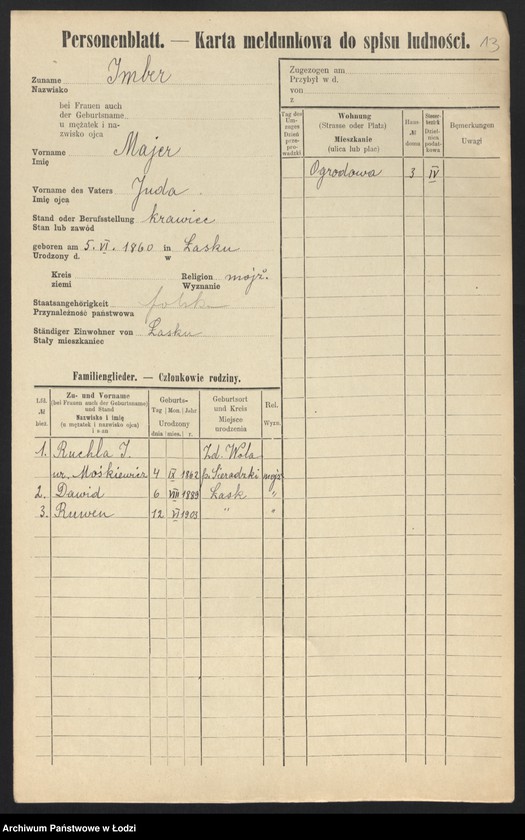 Personenblatt. — Karta meldunkowa do spisu ludności. 13
Zuname Imber
Nazwisko
bei Frauen auch
der Geburtsname
u mężatek i na-
zwisko ojca
Vorname Majer
Imię
Vorname des Vaters Juda
Imię ojca
Stand oder Berufsstellung krawiec
Stan lub zawód
geboren am 5. VI. 1860 in Łasku
Urodzony d. w
Kreis
ziemi
Religion mojż.
Wyznanie
Staatsangehörigkeit polsk
Przynależność państwowa
Ständiger Einwohner von Łasku
Stały mieszkaniec
Zugezogen am
Przybył w d.
von
z
Tag des Um-
zuges
Dzień
prze-
pro-
wadzki
Wohnung
(Strasse oder Platz)
Mieszkanie
(ulica lub plac)
Haus-
№
domu
Steuer-
bezirk
Dziel-
nica
podat-
kowa
Bemerkungen
Uwagi
Ogrodowa 3 IV
Familienglieder. — Członkowie rodziny.
Lfd.
№
bież.
Zu- und Vorname
(bei Frauen auch der Geburtsname)
und Stand
Nazwisko i imię
(u mężatek i nazwisko ojca)
i stan
Geburts-
Tag Mon. Jahr
Urodzony
dnia mies. r.
Geburtsort
und Kreis
Miejsce
urodzenia
Rel.
Wyzn.
1. Ruchla I. Zd. Wola
ur. Mośkiewicz 4 IX 1862 p. Sieradzki mojż
2. Dawid 6 VIII 1889 Łask "
3. Ruwen 12 VI 1903 " "
Archiwum Państwowe w Łodzi